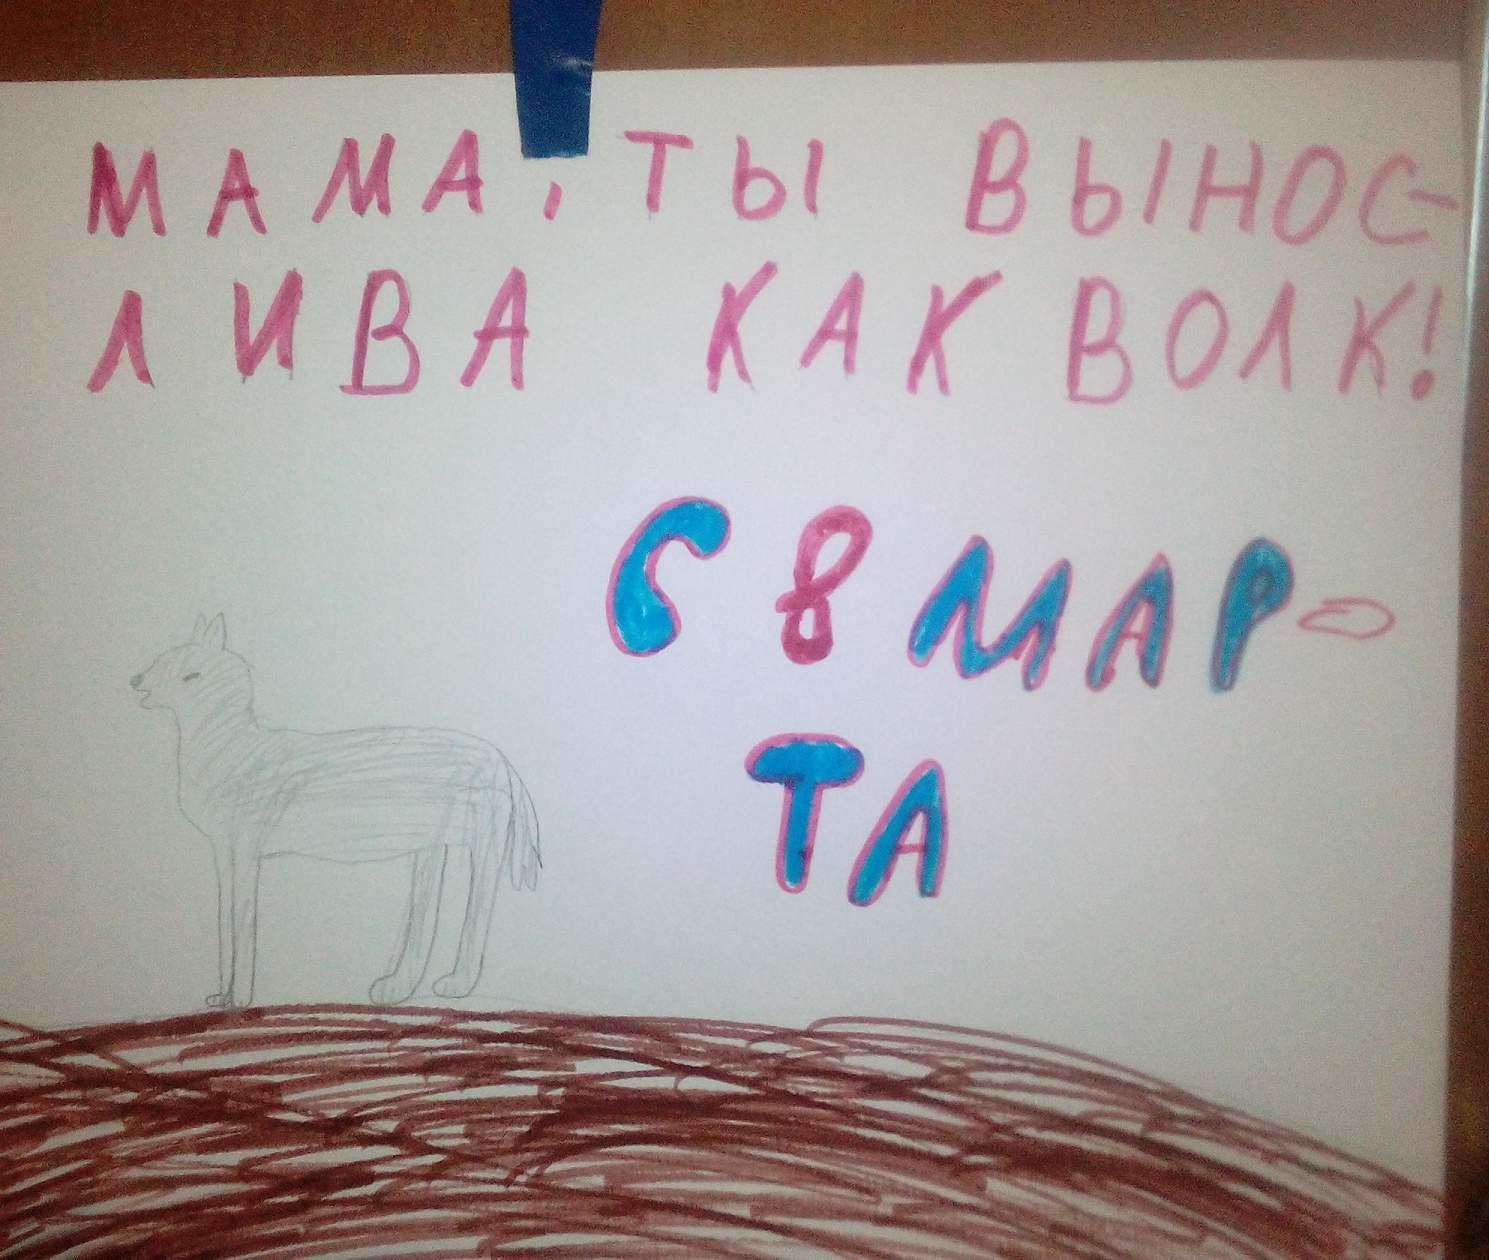 МАМА, ТЫ ВЫНОС-
ЛИВА КАК ВОЛК!
С 8 МАР-
ТА